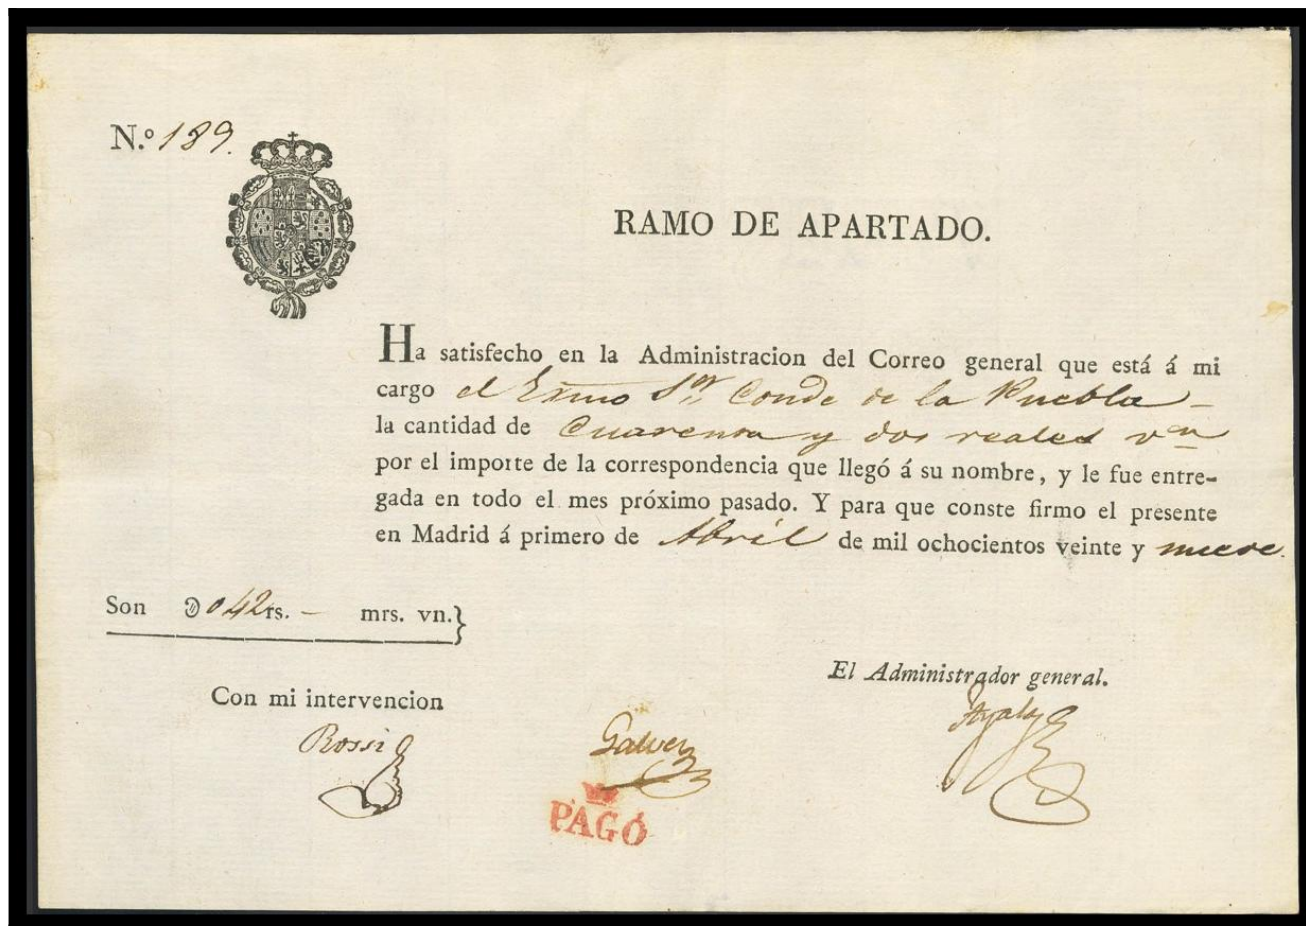 N.º 189.
RAMO DE APARTADO.
Ha satisfecho en la Administracion del Correo general que está á mi
cargo el Exmo Sor Conde de la Puebla -
la cantidad de Cuarenta y dos reales vn
por el importe de la correspondencia que llegó á su nombre, y le fue entre-
gada en todo el mes próximo pasado. Y para que conste firmo el presente
en Madrid á primero de Abril de mil ochocientos veinte y nueve.
Son 042 rs. — mrs. vn.}
El Administrador general.
Con mi intervencion
Ayala
Rossi
Galvez
PAGÓ